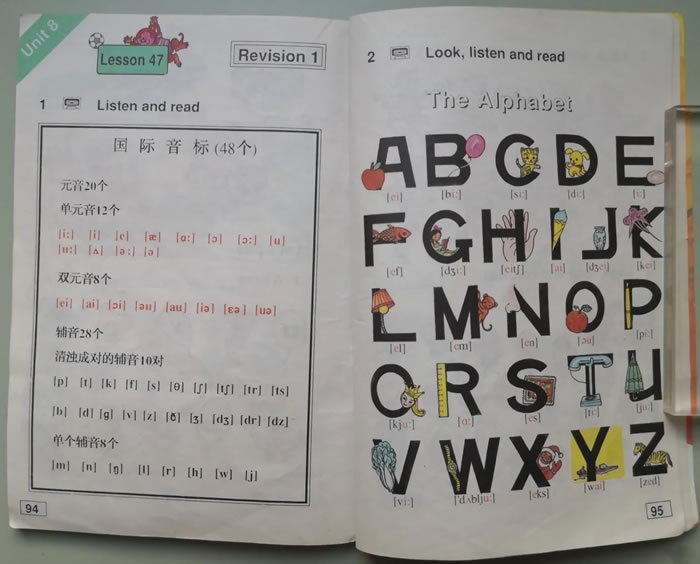 Unit 8
Lesson 47
Revision 1
1 Listen and read
国际音标(48个)
元音20个
单元音12个
[i:] [i] [e] [æ] [ɑ:] [ɔ] [ɔ:] [u]
[u:] [ʌ] [ə:] [ə]
双元音8个
[ei] [ai] [ɔi] [əu] [au] [iə] [εə] [uə]
辅音28个
清浊成对的辅音10对
[p] [t] [k] [f] [s] [θ] [ʃ] [tʃ] [tr] [ts]
[b] [d] [g] [v] [z] [ð] [ʒ] [dʒ] [dr] [dz]
单个辅音8个
[m] [n] [ŋ] [l] [r] [h] [w] [j]
94
2 Look, listen and read
The Alphabet
A B C D E
[ei] [bi:] [si:] [di:] [i:]
F G H I J K
[ef] [dʒi:] [eitʃ] [ai] [dʒei] [kei]
L M N O P
[el] [em] [en] [əu] [pi:]
Q R S T U
[kju:] [ɑ:] [es] [ti:] [ju:]
V W X Y Z
[vi:] ['dʌblju:] [eks] [wai] [zed]
95